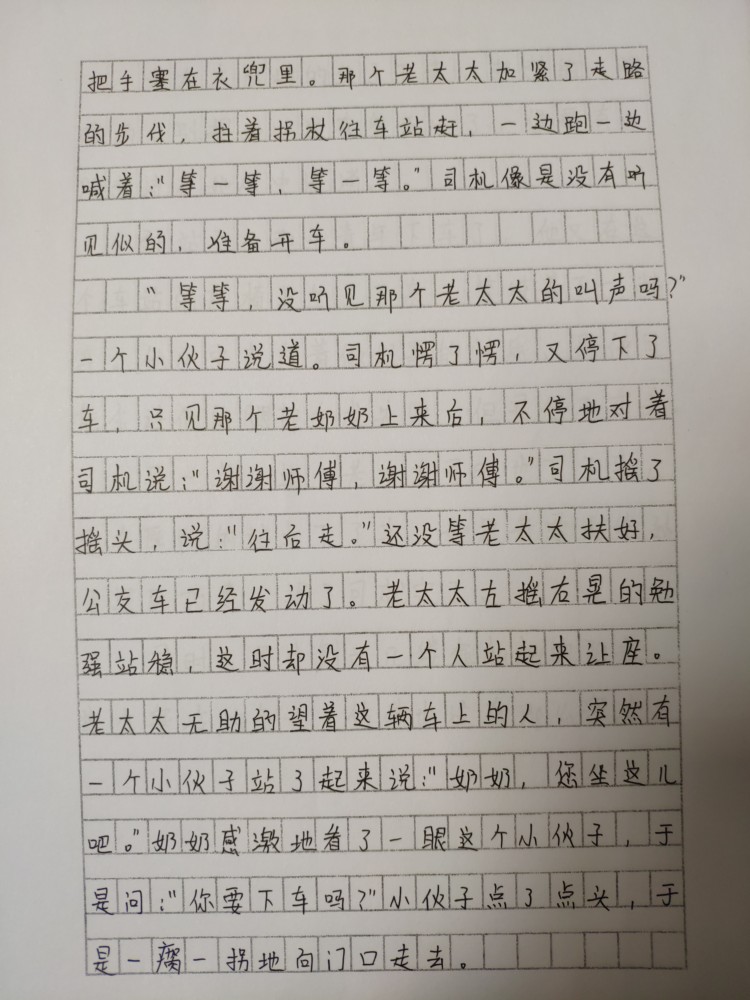 把手塞在衣兜里。那个老太太加紧了走路
的步伐，拄着拐杖往车站赶，一边跑一边
喊着：“等一等，等一等。”司机像是没有听
见似的，准备开车。
“等等，没听见那个老太太的叫声吗？”
一个小伙子说道。司机愣了愣，又停下了
车，只见那个老奶奶上来后，不停地对着
司机说：“谢谢师傅，谢谢师傅。”司机摇了
摇头，说：“往后走。”还没等老太太扶好，
公交车已经发动了。老太太左摇右晃的勉
强站稳，这时却没有一个人站起来让座。
老太太无助的望着这辆车上的人，突然有
一个小伙子站了起来说：“奶奶，您坐这儿
吧。”奶奶感激地看了一眼这个小伙子，于
是问：“你要下车吗？”小伙子点了点头，于
是一瘸一拐地向门口走去。